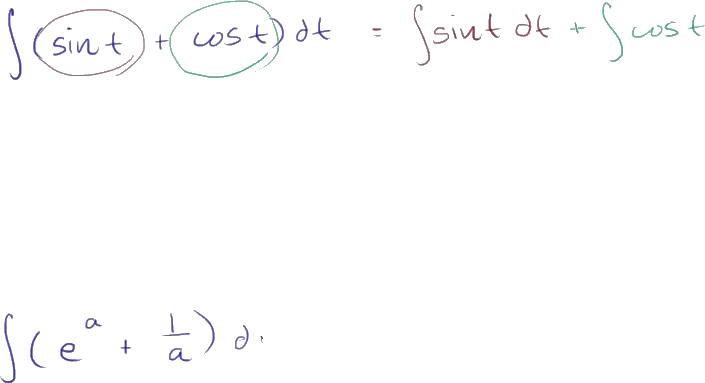 ∫(sin t + cos t) dt = ∫sin t dt + ∫cos t
∫(e^a + 1/a) d